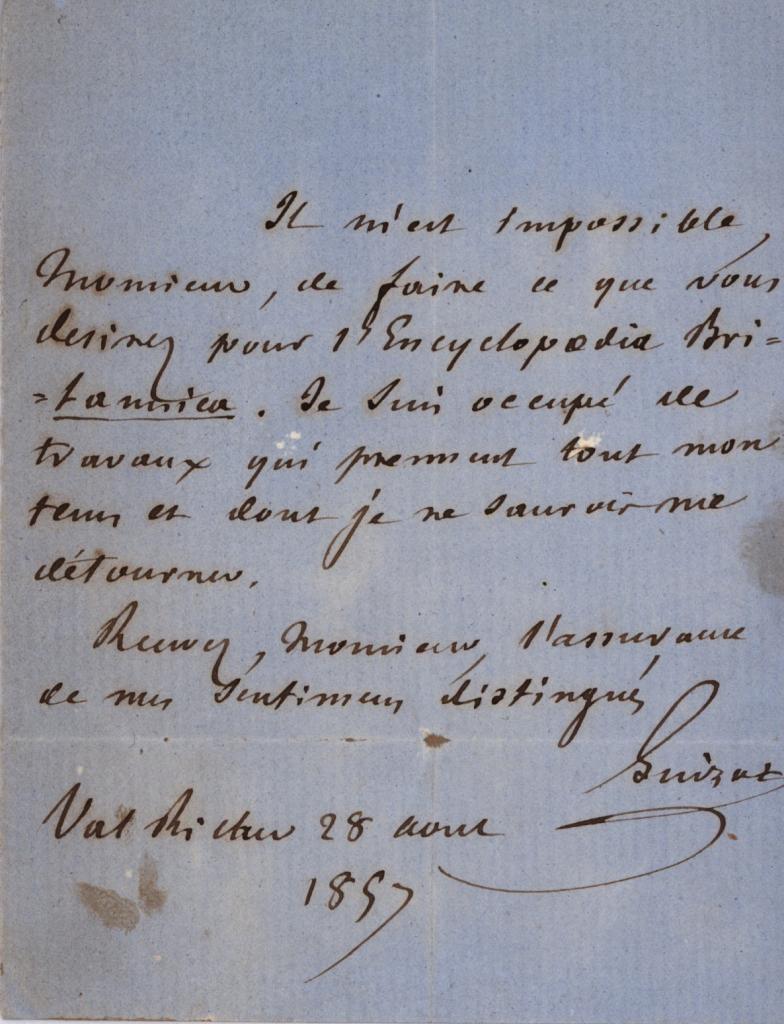 Il m'est impossible,
Monsieur, de faire ce que vous
desirez pour l'Encyclopædia Bri=
=tannica. Je suis occupé de
travaux qui prennent tout mon
tems et dont je ne saurois me
détourner.
Recevez, Monsieur, l'assurance
de mes sentimens distingués
Guizot
Val Richer 28 aout
1857